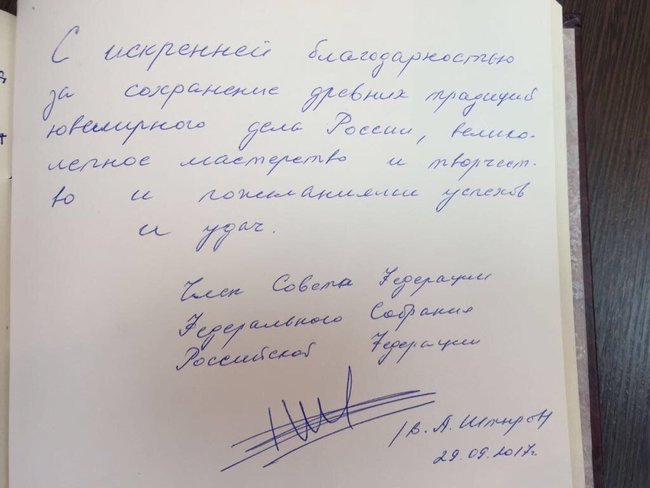 С искренней благодарностью
за сохранение древних традиций
ювелирного дела России, велико-
лепное мастерство и творчест-
во и пожеланиями успехов
и удач.
Член Совета Федерации
Федерального Собрания
Российской Федерации
/В. А. Штыров
29.09.2017г.